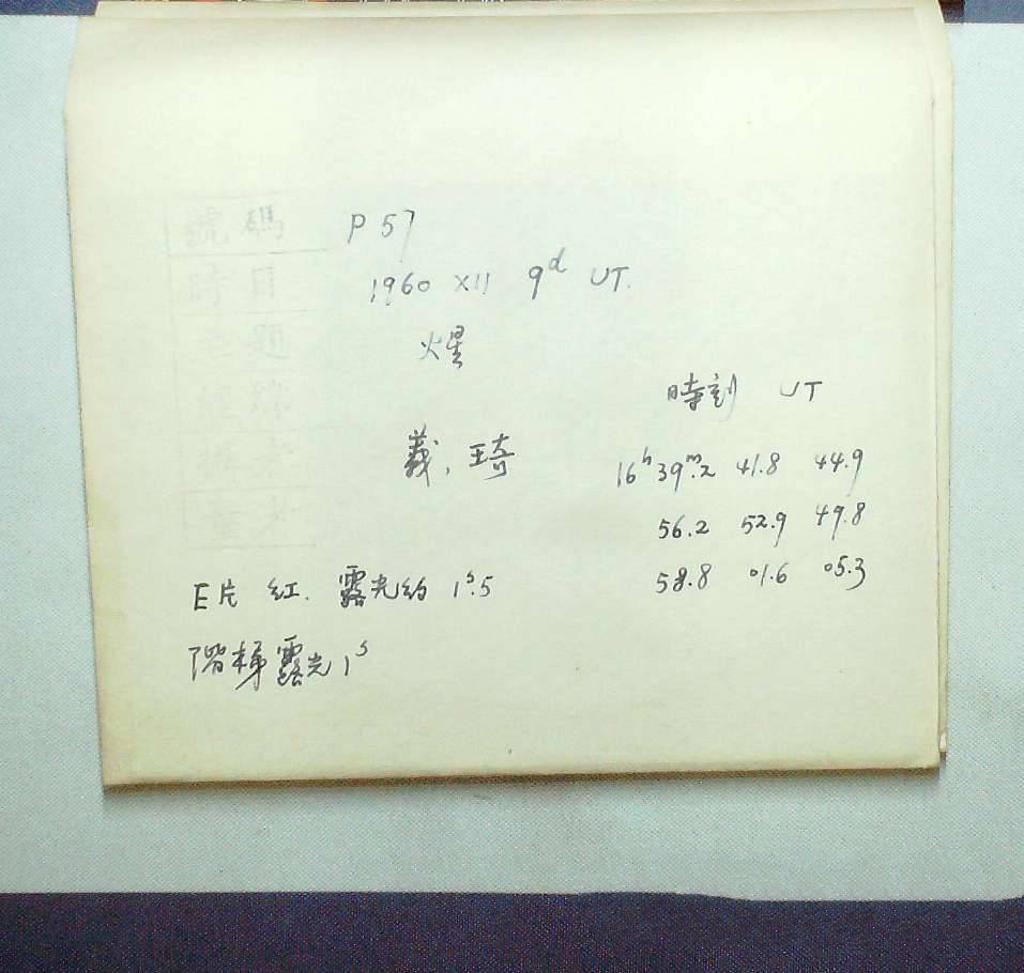 號碼
P 57
時日
1960 XII 9ᵈ UT.
題
火星
時刻 UT
義, 琦
16ʰ39ᵐ.2 41.8 44.9
56.2 52.9 49.8
58.8 01.6 05.3
E片 紅. 露光約 1ˢ.5
階梯露光 1ˢ